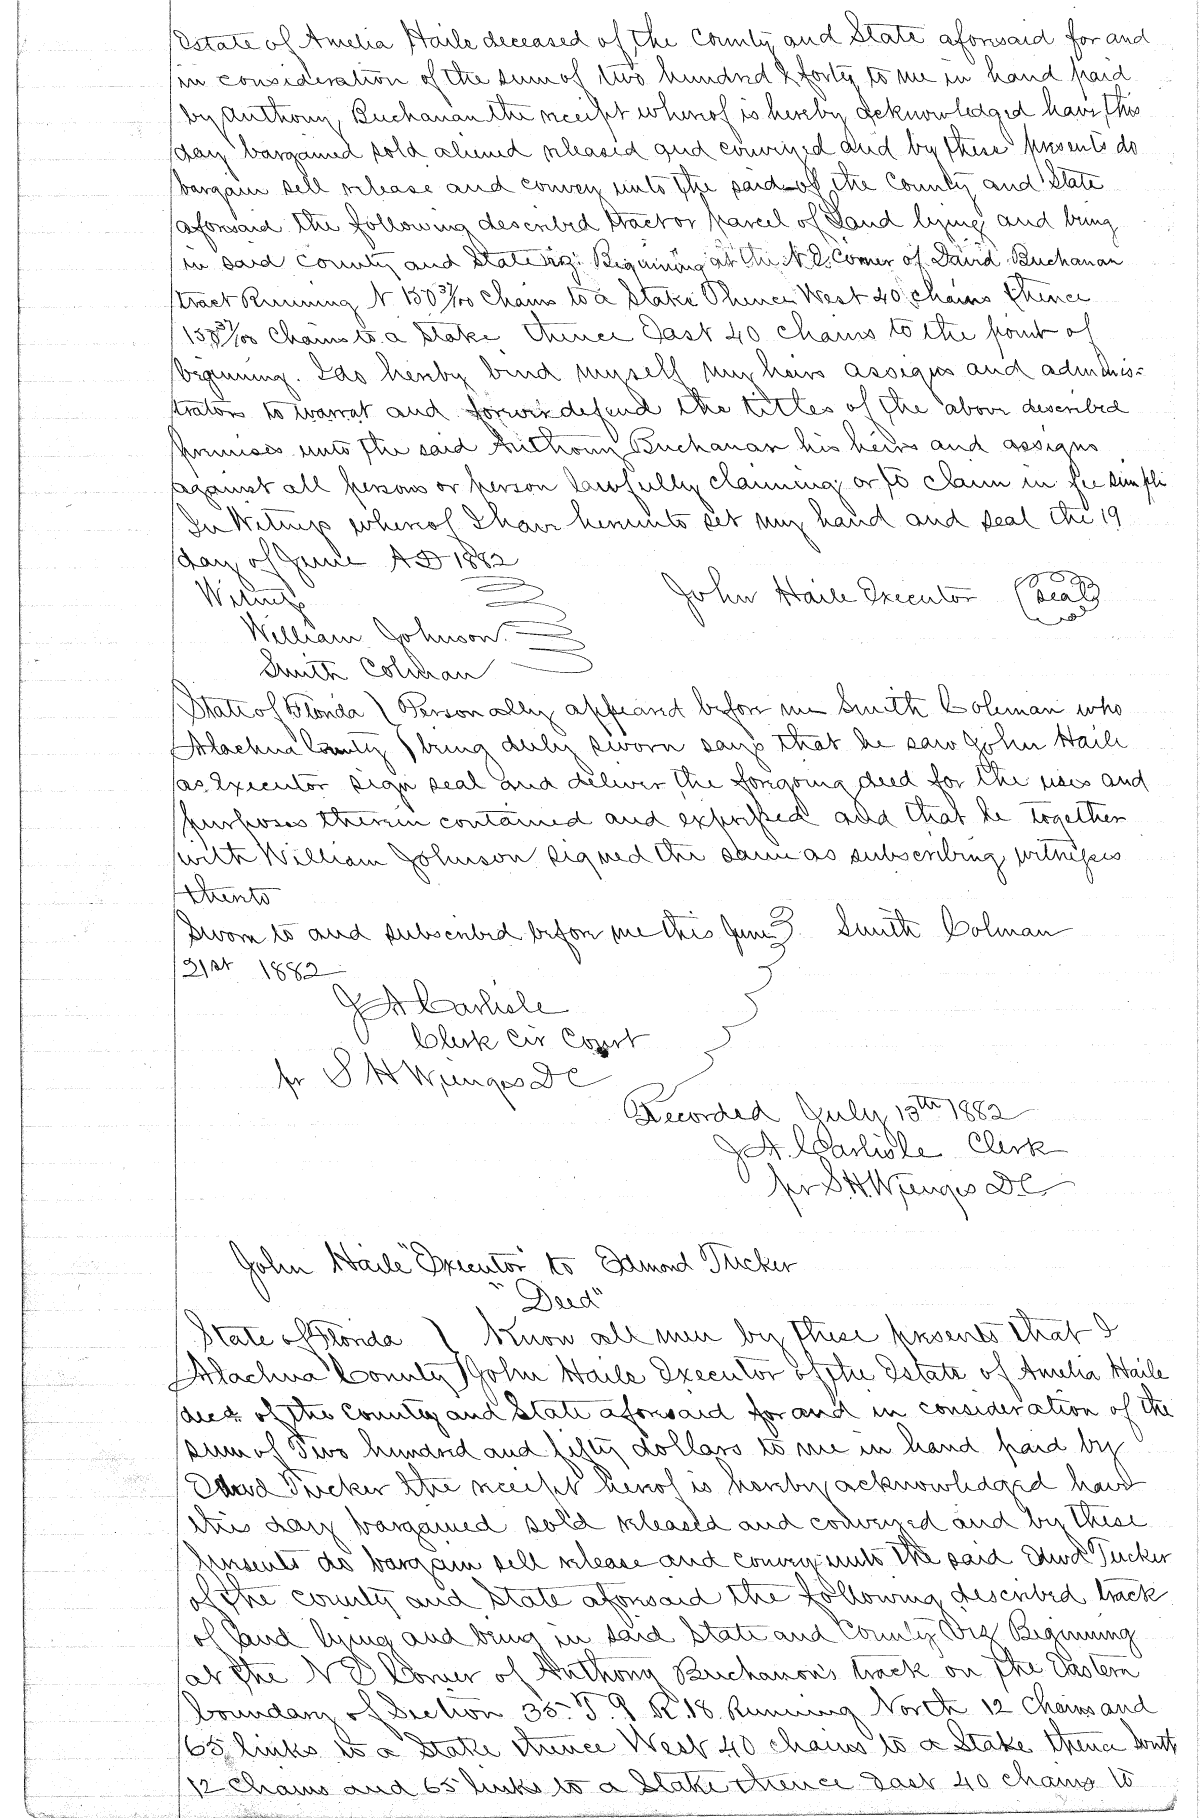 Estate of Amelia Haile deceased of the County and State aforesaid for and
in consideration of the sum of two hundred & forty to me in hand paid
by Anthony Buchanan the receipt whereof is hereby acknowledged have this
day bargained sold aliened released and conveyed and by these presents do
bargain sell release and convey unto the said of the County and State
aforesaid the following described tract or parcel of Land lying and being
in said County and State viz: Beginning at the N.E. Corner of David Buchanan
tract Running N chains to a Stake Thence West 40 chains thence
Chains to a Stake thence East 40 chains to the point of
beginning. I do hereby bind myself my heirs assigns and adminis-
trators to warrat and forever defend the titles of the above described
premises unto the said Anthony Buchanan his heirs and assigns
against all persons or person lawfully claiming or to claim in fee simple
In Witness whereof I have hereunto set my hand and seal the 19
day of June AD 1882
Witness John Haile Executor (Seal)
William Johnson
Smith Colman
State of Florida } Personally appeared before me Smith Coleman who
Alachua County } being duly sworn says that he saw John Haile
as Executor sign seal and deliver the foregoing deed for the uses and
purposes therein contained and expressed and that he together
with William Johnson signed the same as subscribing witnesses
thereto
Sworn to and subscribed before me this June } Smith Colman
21st 1882
J A Carlisle
Clerk Cir Court
pr S H Wienges DC
Recorded July 13th 1882
J A. Carlisle Clerk
per S.H. Wienges D.C.
John Haile "Executor" to Edmond Tucker
"Deed"
State of Florida } Know all men by these presents that I
Alachua County } John Haile Executor of the Estate of Amelia Haile
decd of the County and State aforesaid for and in consideration of the
sum of Two hundred and fifty dollars to me in hand paid by
Edmd Tucker the receipt hereof is hereby acknowledged have
this day bargained sold released and conveyed and by these
presents do bargain sell release and convey unto the said Edmd Tucker
of the county and State aforesaid the following described track
of land lying and being in said State and County Viz Beginning
at the N E Corner of Anthony Buchanon's track on the Eastern
boundary of Section 35. T. 9 R. 18. Running North 12 Chains and
65 links to a Stake thence West 40 chains to a Stake thence South
12 Chains and 65 links to a Stake thence East 40 chains to